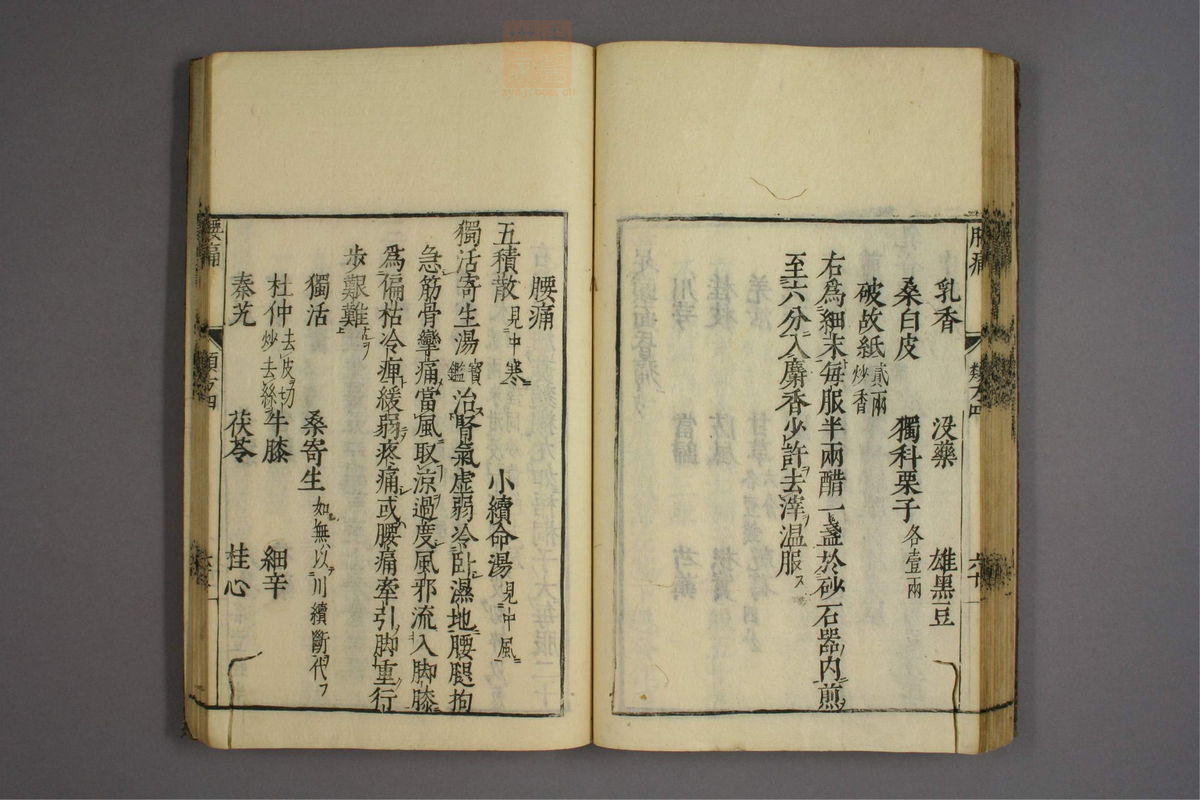 乳香 沒藥 雄黑豆
桑白皮 獨科栗子各壹兩
破故紙貳兩炒香
右爲細末每服半兩醋一盞於砂石器內煎
至六分入麝香少許去滓温服ス
腰痛
五積散見中寒ニ 小續命湯見中風ニ
獨活寄生湯寶鑑 治腎氣虛弱冷卧濕地腰腿拘
急筋骨攣痛當風取凉過度風邪流入脚膝
爲偏枯冷痺緩弱疼痛或腰痛牽引脚重行
步艱難
獨活 桑寄生如無以川續斷代
杜仲去皮切炒去絲 牛膝 細辛
秦艽 茯苓 桂心
腰痛 類方四
類方四 六十